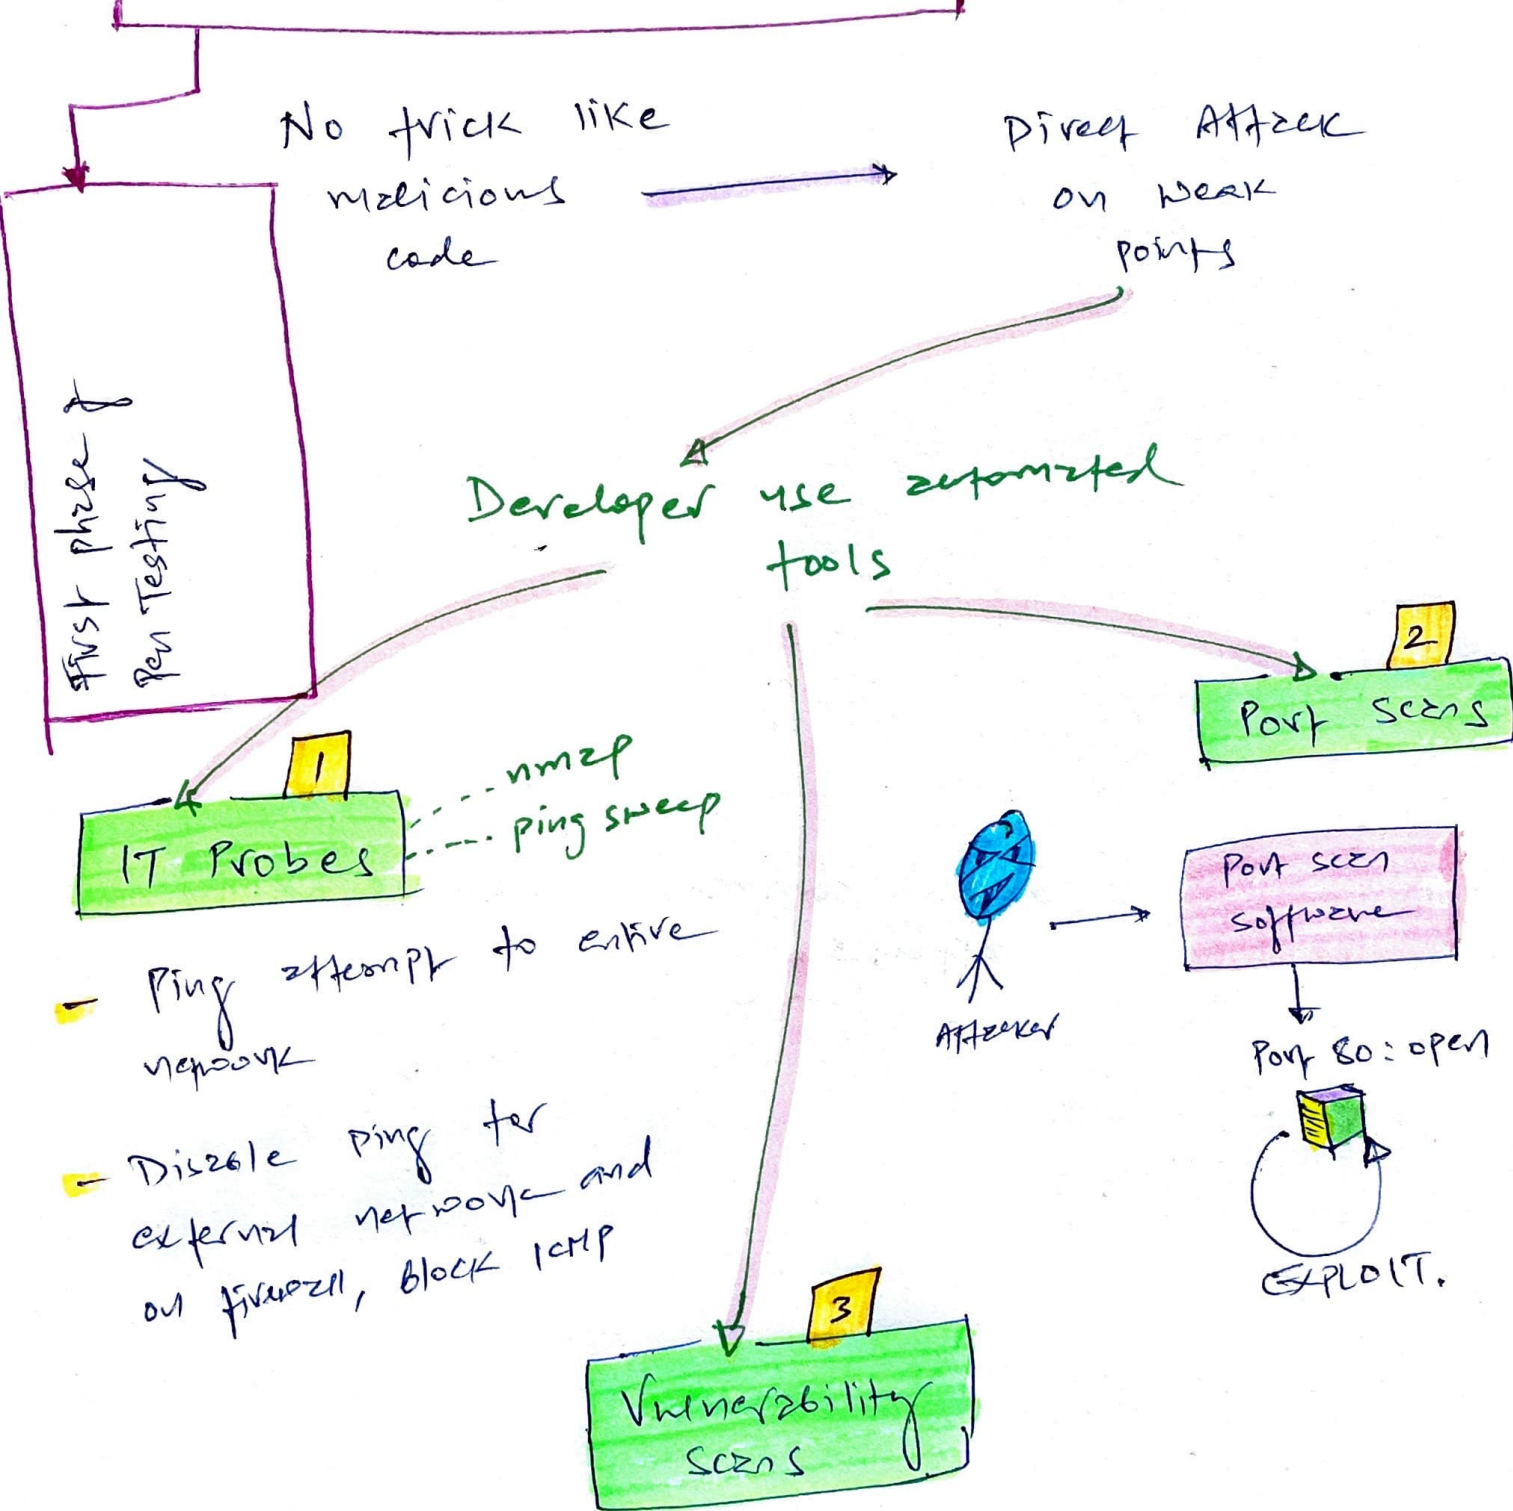 No trick like
malicious
code
Direct Attack
on weak
points
First phase of
Pen Testing
Developer use automated
tools
1
IT Probes
nmap
ping sweep
Ping attempt to entire
network
Disable ping for
external network and
on firewall, block ICMP
2
Port scans
Attacker
Port scan
software
Port 80: open
EXPLOIT.
3
Vulnerability
scans